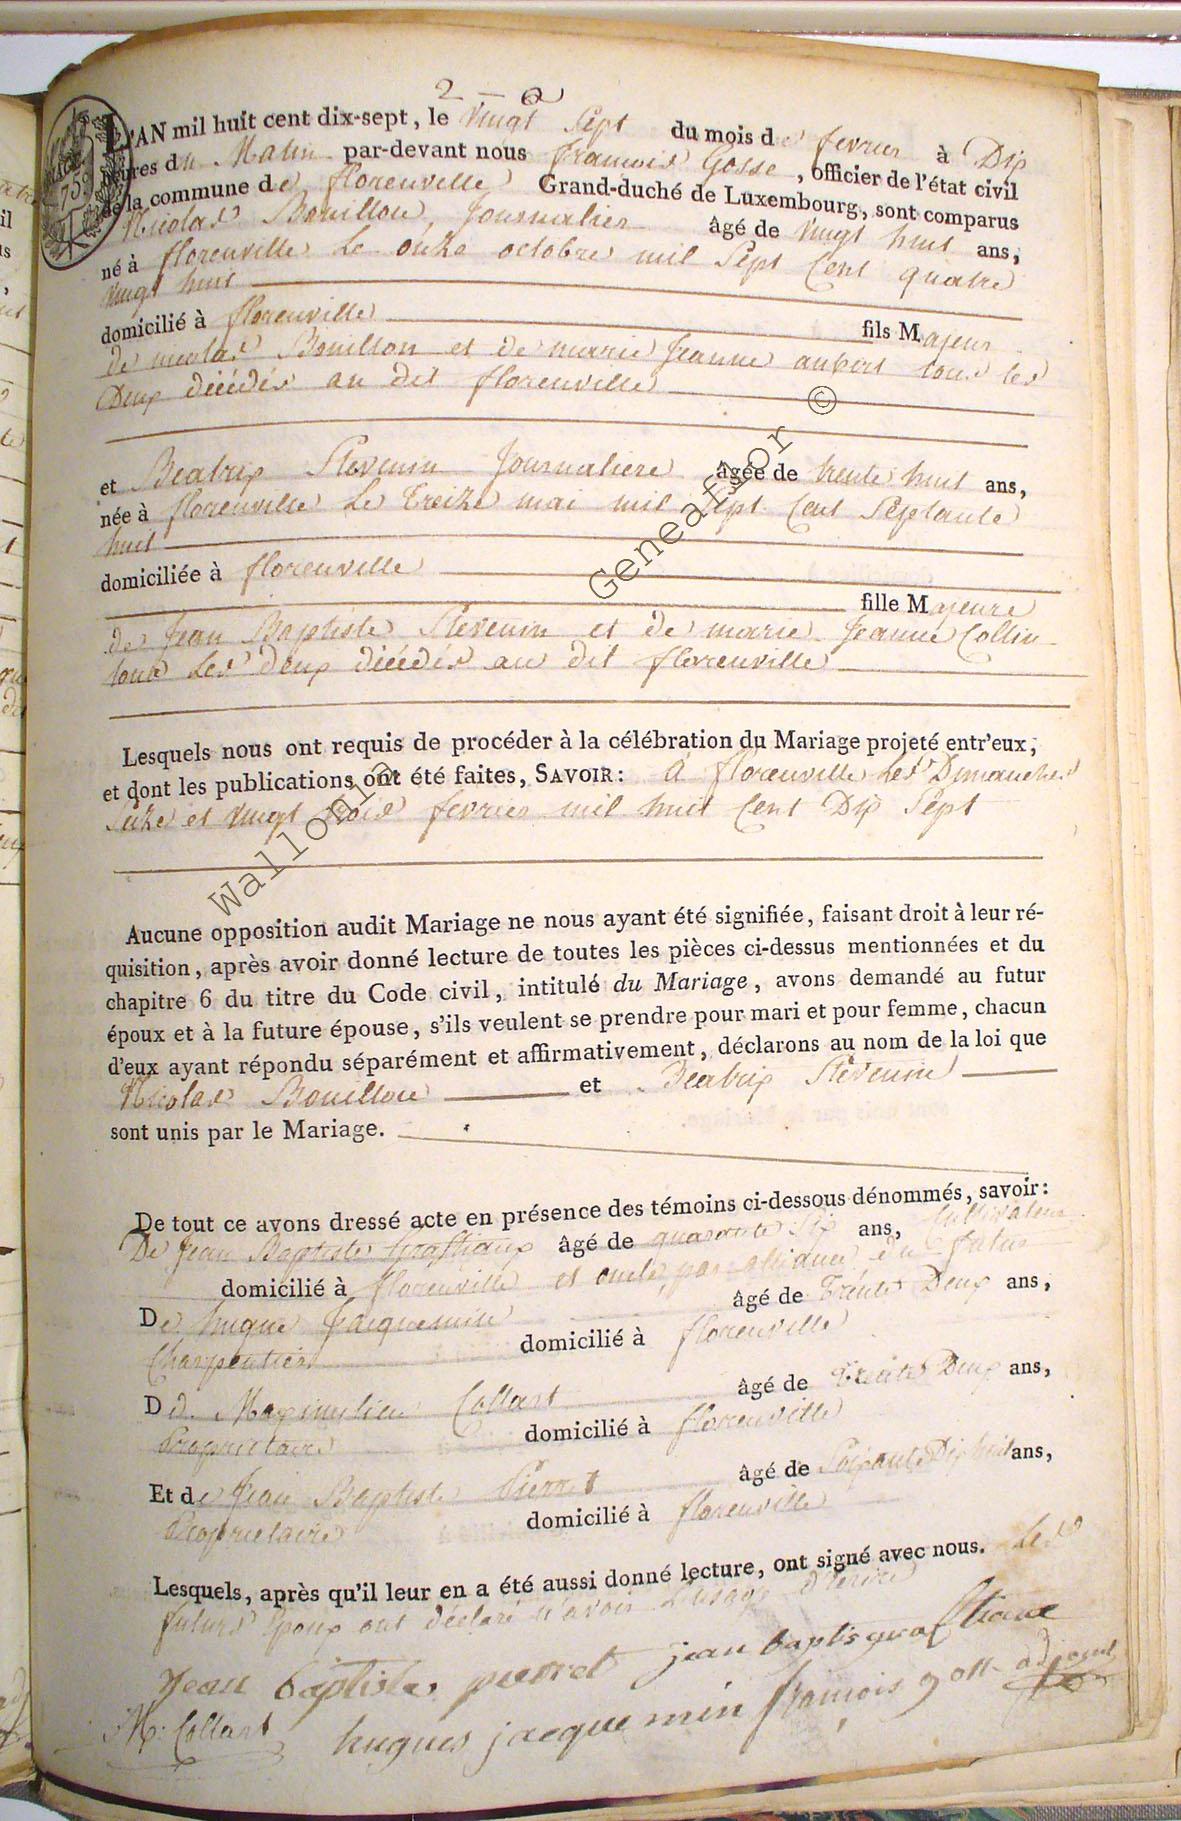 2
L'AN mil huit cent dix-sept, le vingt sept du mois de fevrier à Dix
heures du Matin par-devant nous francois Gosse, officier de l'état civil
de la commune de florenville Grand-duché de Luxembourg, sont comparus
Nicolas Bouillon Journalier âgé de vingt huit ans,
né à florenville le onze octobre mil Sept Cent quatre
vingt huit
domicilié à florenville fils Majeur
de nicolas Bouillon et de marie Jeanne aubert tous les
Deux décédés au dit florenville
et Beatrix Stevenin Journaliere âgée de trente huit ans,
née à florenville Le Treize mai mil Sept Cent Septante
huit
domiciliée à florenville
fille Majeure
de Jean Baptiste Stevenin et de marie Jeanne Collin
tous Les deux décédés au dit florenville
Lesquels nous ont requis de procéder à la célébration du Mariage projeté entr'eux,
et dont les publications ont été faites, SAVOIR: à florenville Les Dimanches
Seize et vingt trois fevrier mil huit Cent Dix Sept
Aucune opposition audit Mariage ne nous ayant été signifiée, faisant droit à leur ré-
quisition, après avoir donné lecture de toutes les pièces ci-dessus mentionnées et du
chapitre 6 du titre du Code civil, intitulé du Mariage, avons demandé au futur
époux et à la future épouse, s'ils veulent se prendre pour mari et pour femme, chacun
d'eux ayant répondu séparément et affirmativement, déclarons au nom de la loi que
Nicolas Bouillon et Beatrix Stevenin
sont unis par le Mariage.
De tout ce avons dressé acte en présence des témoins ci-dessous dénommés, savoir:
De Jean Baptiste Graftiaux âgé de quarante Six ans, Cultivateur
domicilié à florenville et oncle par alliance du futur
De hugue Jacquemin âgé de Trente Deux ans,
Charpentier domicilié à florenville
De Maximilien Collart âgé de Trente Deux ans,
Proprietaire domicilié à florenville
Et de Jean Baptiste Pierret âgé de Soixante Dix huit ans,
Proprietaire domicilié à florenville
Lesquels, après qu'il leur en a été aussi donné lecture, ont signé avec nous. Les
futurs Epoux ont déclaré n'avoir L'usage d'Ecrire
Jean baptiste pierret jean baptis graftiaux
M: Collart hugues jacquemin francois
Wallonia Geneaflor ©
759